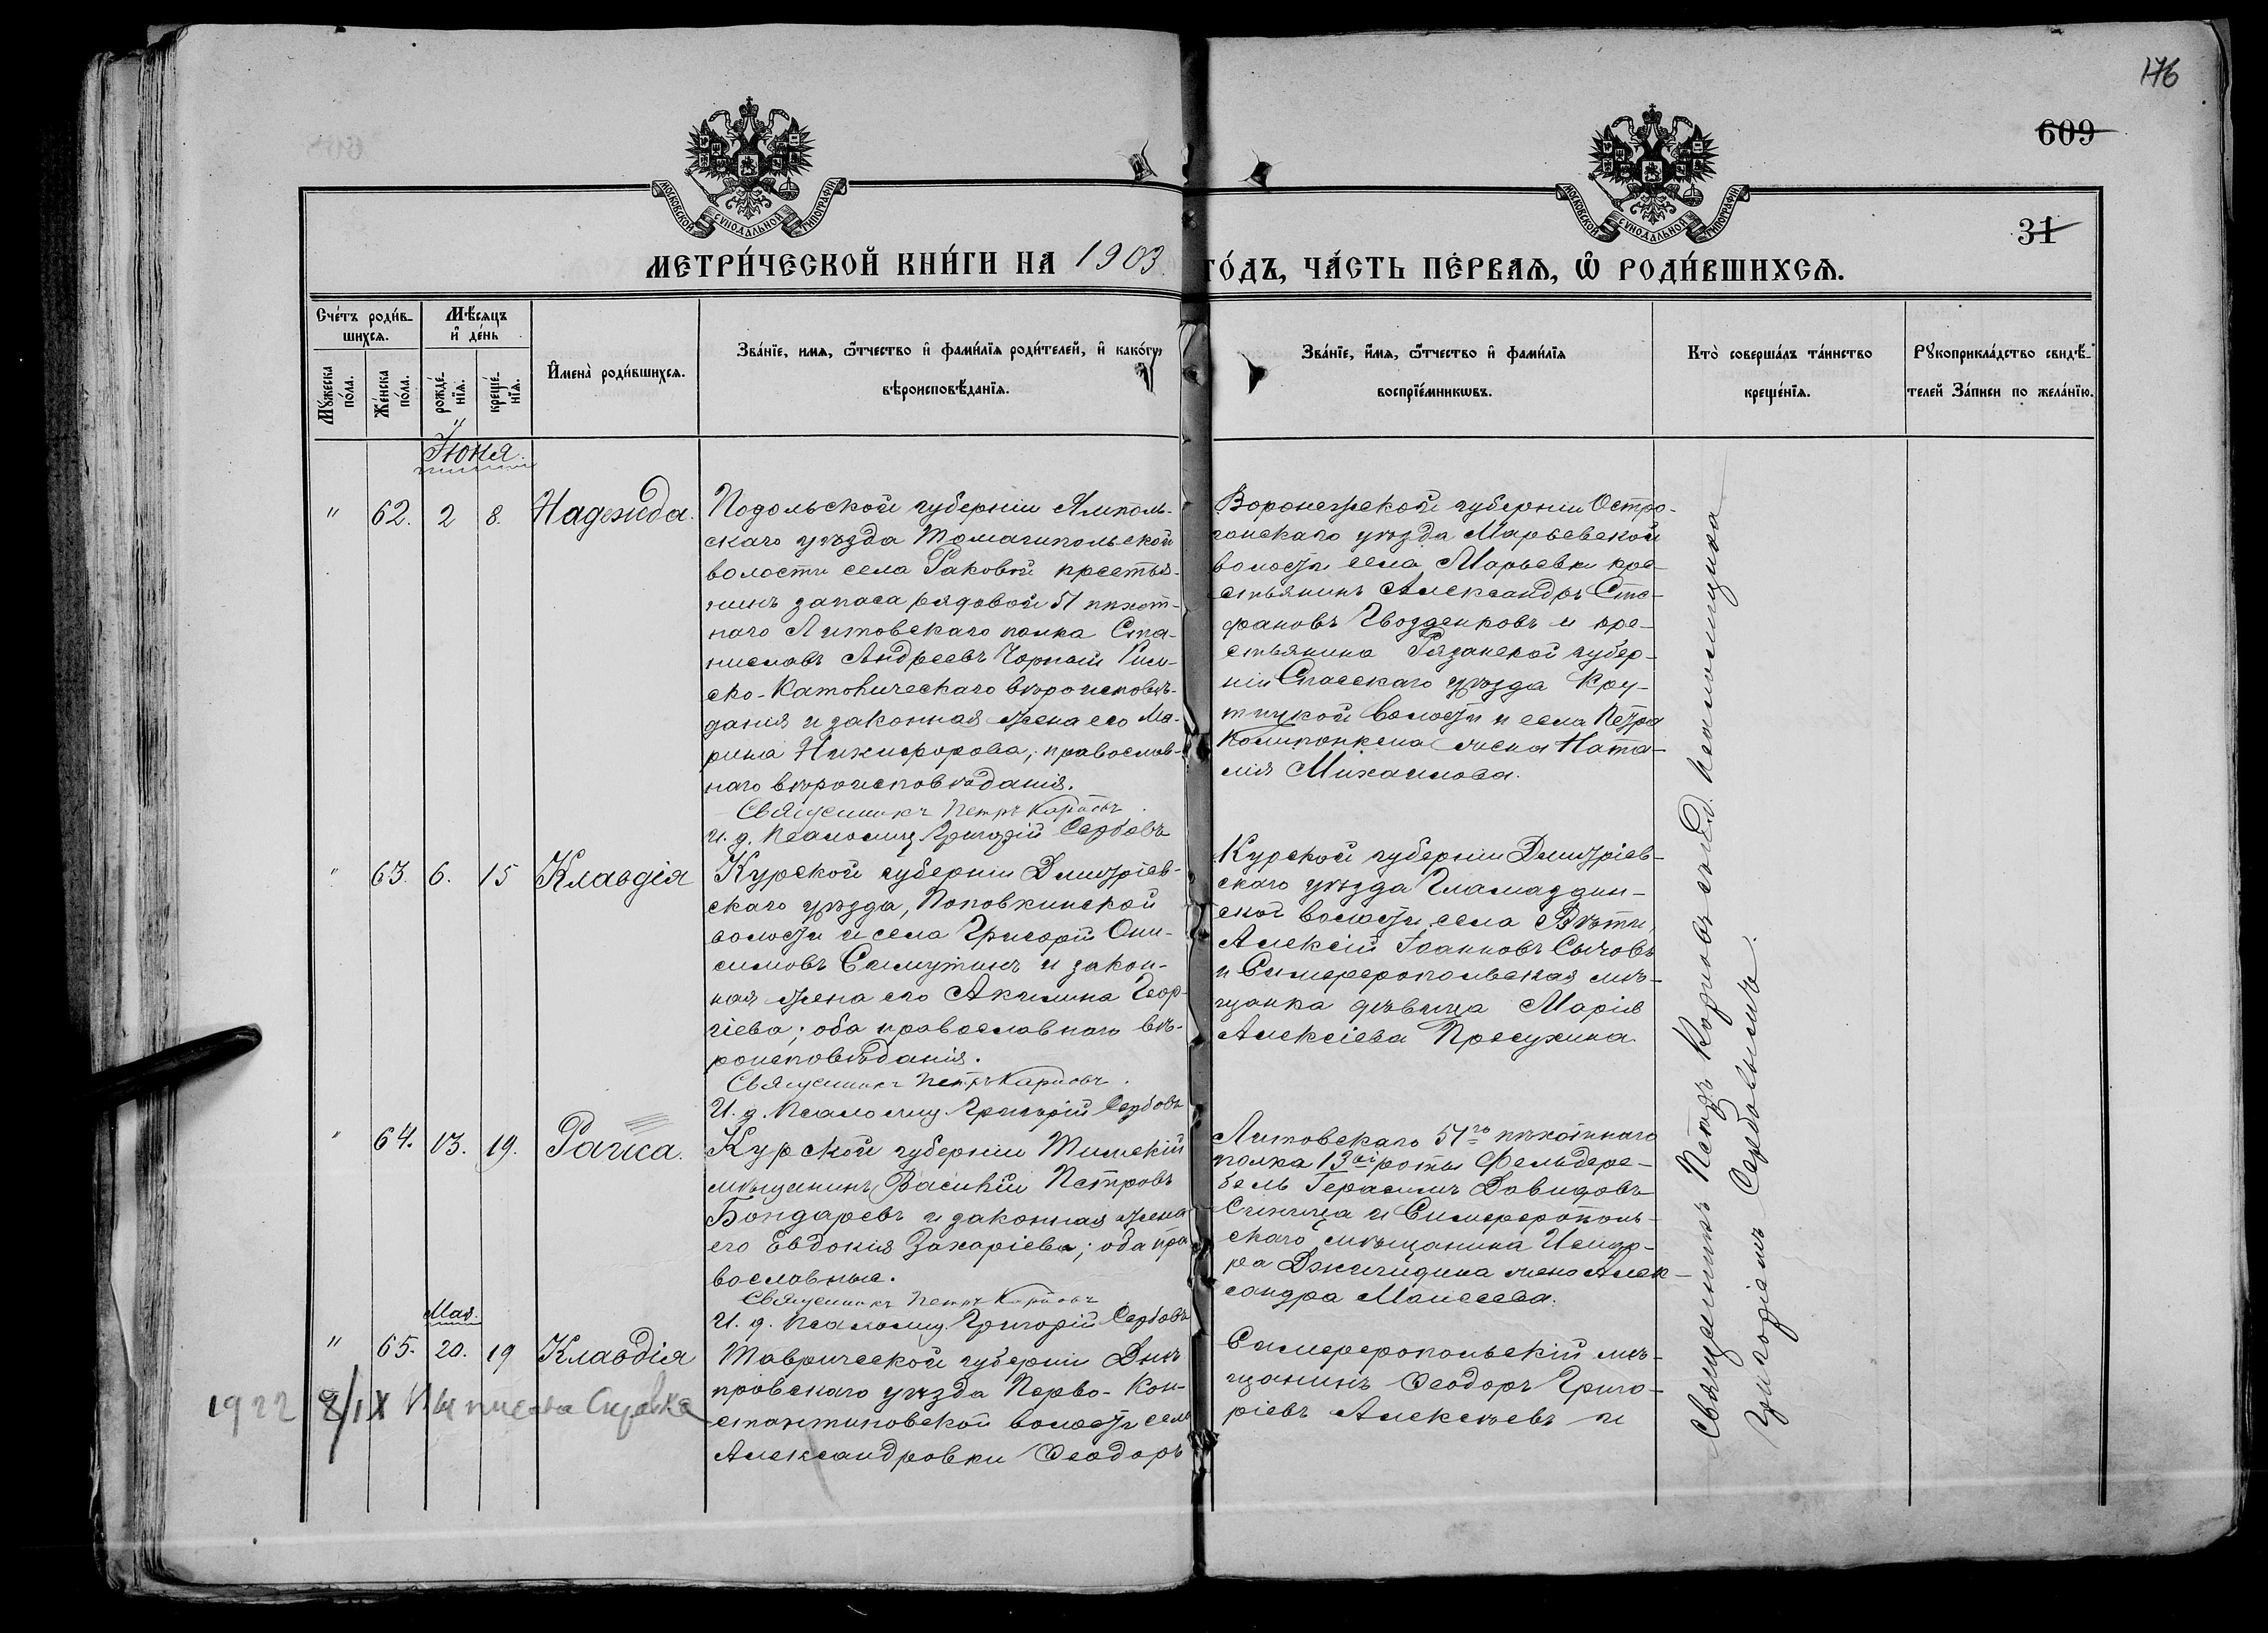 176
609
31
МОСКОВСКОЙ СѴНОДАЛЬНОЙ ТИПОГРАФІИ
МОСКОВСКОЙ СѴНОДАЛЬНОЙ ТИПОГРАФІИ
МЕТРИ́ЧЕСКОЙ КНИ́ГИ НА 1903 ГО́ДЪ, ЧА́СТЬ ПЕ́РВАѦ, Ѡ РОДИ́ВШИХСѦ.
Сче́тъ роди́в-
шихсѧ.
Мꙋ́жеска
по́ла.
Же́нска
по́ла.
Мѣ́сѧцъ
и де́нь
рожде́-
нїѧ.
креще́-
нїѧ.
Имена̀ роди́вшихсѧ.
Зва́нїе, имѧ, ѻ҆́тчество и фами́лїѧ роди́телей, и како́гѡ
вѣроисповѣ́данїѧ.
Зва́нїе, и́мѧ, ѻ҆́тчество и фами́лїѧ
воспрїе́мникѡвъ.
Кто̀ соверша́лъ та́инство
креще́нїѧ.
Рꙋкоприкла́дство свидѣ́-
телей За́писи по жела́нїю.
Іюня.
" 62. 2 8. Надежда.
Подольской губерніи Ямполь-
скаго уѣзда Томашпольской
волости села Раковой крестья-
нинъ запаса рядовой 51 пѣхот-
наго Литовскаго полка Ста-
ниславъ Андреевъ Чорный Рим-
ско-Католическаго вѣроисповѣ-
данія и законная жена его Ма-
рина Никифорова, православ-
наго вѣроисповѣданія.
Священникъ Петръ Карповъ.
И. д. Псаломщ. Григорій Сербовъ
Воронежской губерніи Остро-
гожскаго уѣзда Марьевской
волости села Марьевки кре-
стьянинъ Александръ Сте-
фановъ Гвозденковъ и кре-
стьянина Рязанской губер-
ніи Спасскаго уѣзда Кру-
тицкой волости и села Петра
жена Ната-
лія Михаилова.
" 63. 6. 15 Клавдія
Курской губерніи Дмитріев-
скаго уѣзда, Поповкинской
волости и села Григорій Они-
симовъ Симутинъ и закон-
ная жена его Акилина Геор-
гіева; оба православнаго вѣ-
роисповѣданія.
Священникъ Петръ Карповъ.
И. д. Псаломщ. Григорій Сербовъ
Курской губерніи Дмитріев-
скаго уѣзда Гламаздин-
ской волости, села
Алексій Іоанновъ Сычовъ
и Симферопольская мѣ-
щанка дѣвица Марія
Алексіева Пресухина.
" 64. 13. 19. Раиса.
Курской губерніи Тимскій
мѣщанинъ Василій Петровъ
Бондаревъ и законная жена
его Евдокія Захаріева; оба пра
вославные.
Священникъ Петръ Карповъ
И. д. Псаломщ. Григорій Сербовъ
Литовскаго 51го пѣхотнаго
полка 13ой роты Фельдфе-
бель Герасимъ Давидовъ
Синица и Симферополь-
скаго мѣщанина
жена Алек-
сандра Моисеева.
Мая.
" 65. 20. 19 Клавдія
Таврической губерніи Днѣ
провскаго уѣзда Перво-Кон-
стантиновской волости села
Александровки Ѳеодоръ
Симферопольскій мѣ-
щанинъ Ѳеодоръ Григо-
ріевъ Алексѣевъ и
1922 8/IX Выписана Справка
Священникъ Петръ Карповъ съ и.д. псаломщика
Григоріемъ Сербовымъ.